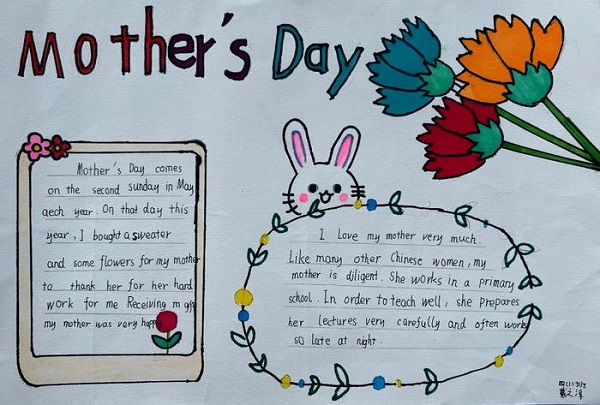 Mother's Day
Mother's Day comes
on the second sunday in May
aech year. On that day this
year, I bought a sweater
and some flowers for my mother
to thank her for her hard
work for me Receiving m
my mother was very
I Love my mother very much.
Like many other Chinese women, my
mother is diligent. She works in a primary
school. In order to teach well, she prepares
her lectures very carefully and often works
so late at night.